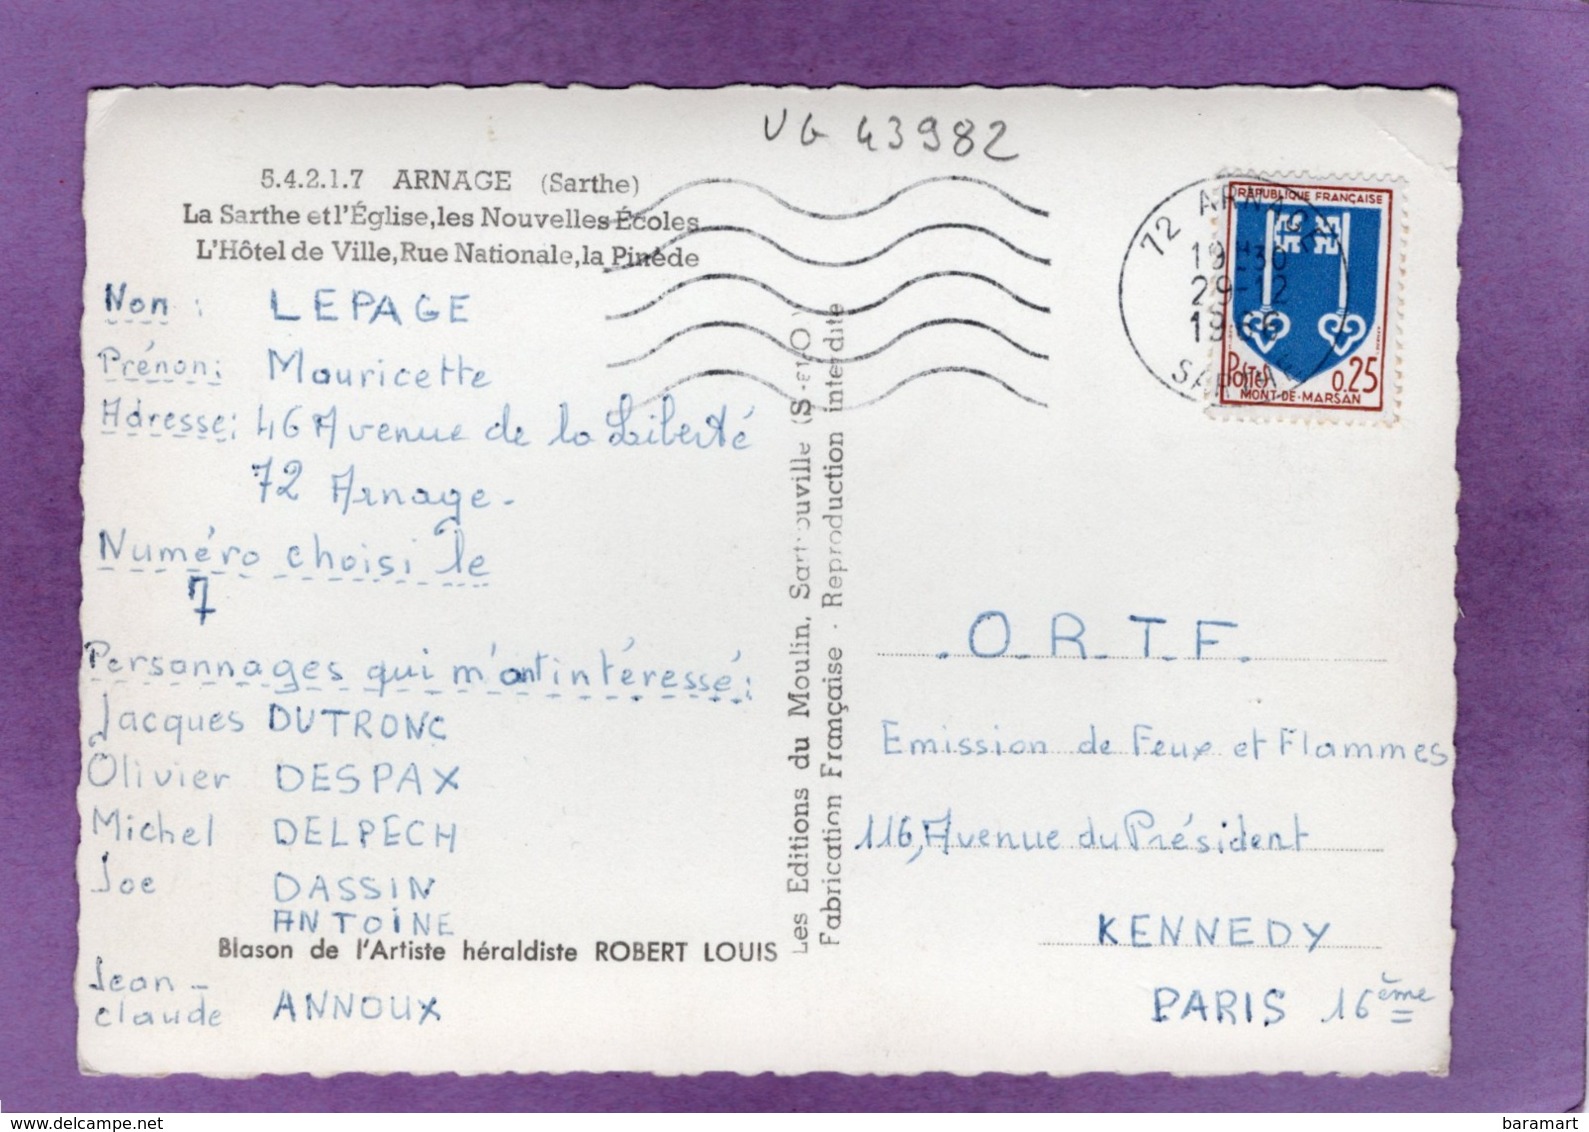 VG 43982
5.4.2.1.7 ARNAGE (Sarthe)
La Sarthe et l'Église, les Nouvelles Écoles
L'Hôtel de Ville, Rue Nationale, la Pinède
Non : LEPAGE
Prénon: Mauricette
Adresse: 46 Avenue de la Liberté
72 Arnage.
Numéro choisi le
7
Personnages qui m'ont intéressé:
Jacques DUTRONC
Olivier DESPAX
Michel DELPECH
Joe DASSIN
ANTOINE
Blason de l'Artiste héraldiste ROBERT LOUIS
Jean-
claude ANNOUX
Les Editions du Moulin, Sartrouville (S-et-O)
Fabrication Française - Reproduction interdite
72 ARNAGE
19H30
29-12
1966
SARTHE
REPUBLIQUE FRANÇAISE
POSTES 0,25
MONT-DE-MARSAN
.O.R.T.F.
Emission de Feux et Flammes
116, Avenue du Président
KENNEDY
PARIS 16ème
baramart